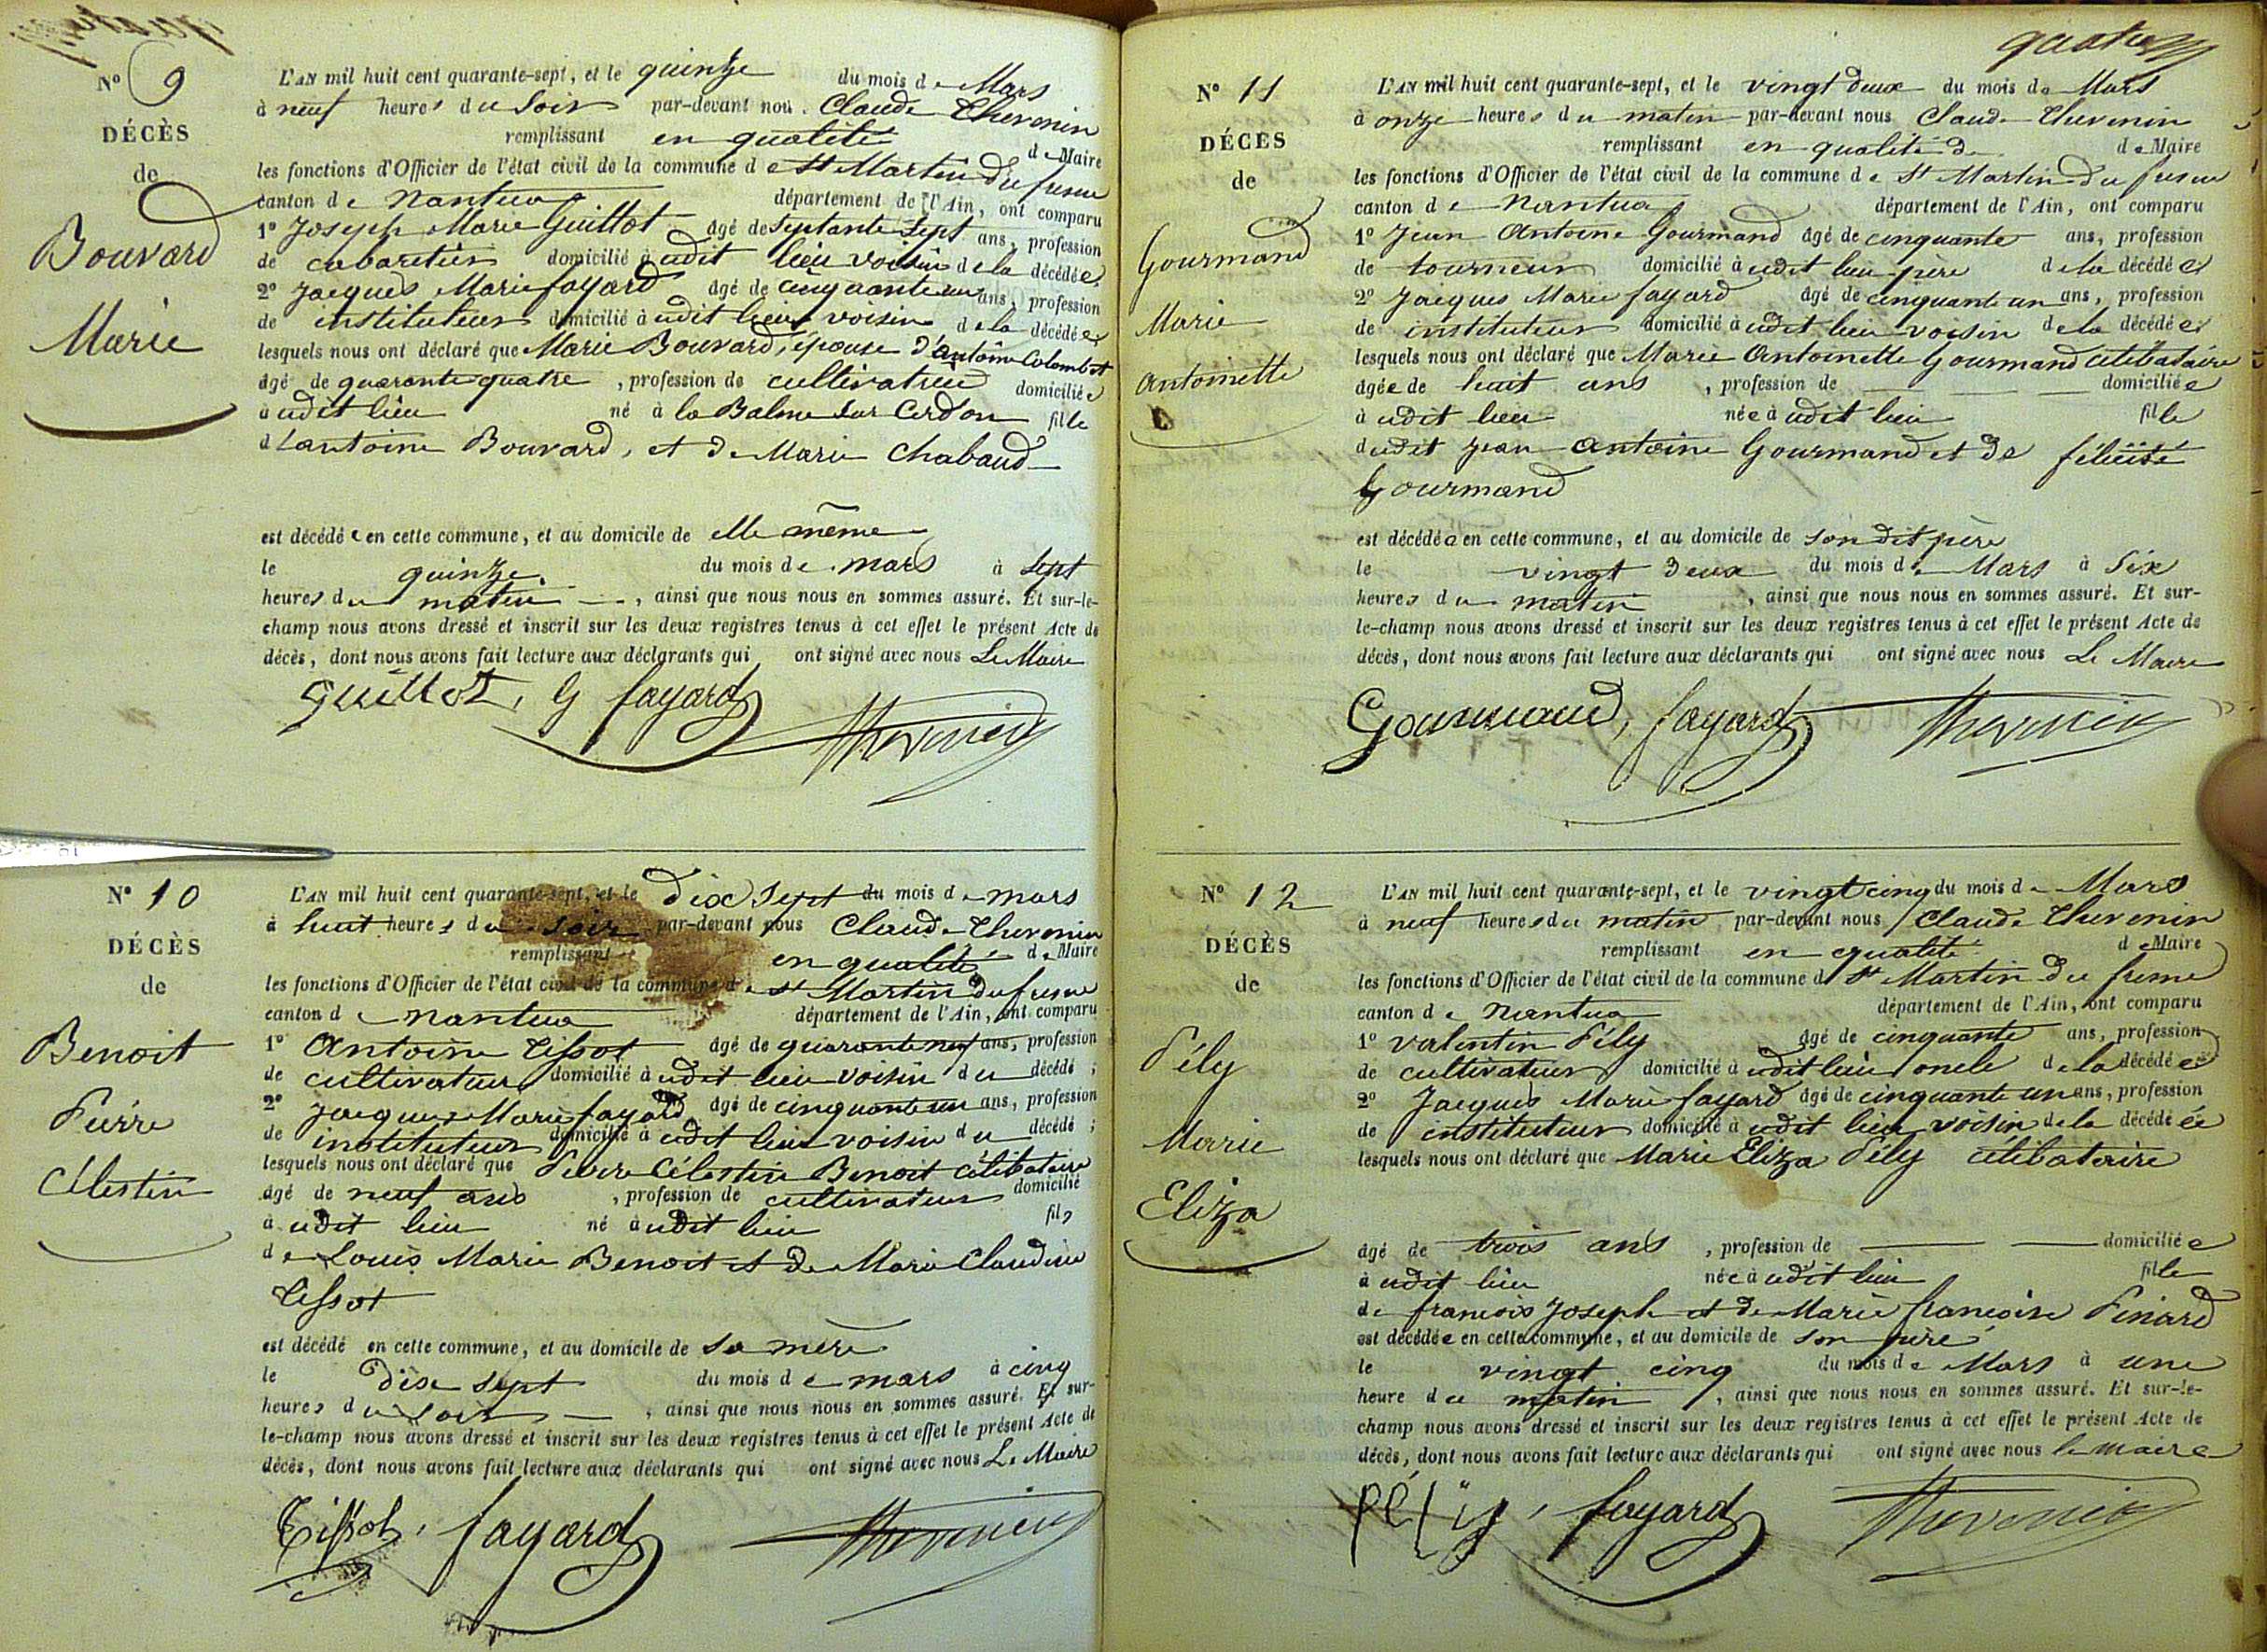 N° 9
DÉCÈS
de
Bouvard
Marie
L'AN mil huit cent quarante-sept, et le quinze du mois de Mars
à neuf heures du soir par-devant nou. Claude Thevenin
remplissant en qualité de Maire
les fonctions d'Officier de l'état civil de la commune de St Martin du fresne
canton de Nantua département de l'Ain, ont comparu
1° Joseph Marie Guillot âgé de septante sept ans, profession
de cabaretier domicilié à udit lieu voisin de la décédée;
2° Jacques Marie fayard âgé de cinquante un ans, profession
de instituteur domicilié à udit lieu voisin de la décédée
lesquels nous ont déclaré que Marie Bouvard, épouse d'antoine Colombet
âgé de quarante quatre , profession de cultivatrice domiciliée
à udit lieu né à la Balme sur Cerdon fille
d'antoine Bouvard, et de Marie Chabaud
est décédée en cette commune, et au domicile de elle même
le quinze du mois de mars à sept
heures du matin , ainsi que nous nous en sommes assuré. Et sur-le-
champ nous avons dressé et inscrit sur les deux registres tenus à cet effet le présent Acte de
décès, dont nous avons fait lecture aux déclarants qui ont signé avec nous Le Maire
Guillot, G fayard Thevenin
N° 10
DÉCÈS
de
Benoit
Pierre
Célestin
L'AN mil huit cent quarante-sept, et le dix sept du mois de mars
à huit heures du soir par-devant nous Claude Thevenin
remplissant en qualité de Maire
les fonctions d'Officier de l'état civil de la commune de St Martin du fresne
canton de Nantua département de l'Ain, ont comparu
1° Antoine Tissot âgé de quarante neuf ans, profession
de cultivateur domicilié à udit lieu voisin du décédé;
2° Jacques Marie fayard âgé de cinquante un ans, profession
de instituteur domicilié à udit lieu voisin du décédé;
lesquels nous ont déclaré que Pierre Célestin Benoit célibataire
âgé de neuf ans , profession de cultivateur domicilié
à udit lieu né à udit lieu fils
de Louis Marie Benoit et de Marie Claudine
Tissot
est décédé en cette commune, et au domicile de sa mère
le dix sept du mois de mars à cinq
heures du soir , ainsi que nous nous en sommes assuré. Et sur-
le-champ nous avons dressé et inscrit sur les deux registres tenus à cet effet le présent Acte de
décès, dont nous avons fait lecture aux déclarants qui ont signé avec nous Le Maire
Tissot, fayard Thevenin
quatre
N° 11
DÉCÈS
de
Gourmand
Marie
antoinette
L'AN mil huit cent quarante-sept, et le vingt deux du mois de Mars
à onze heures du matin par-devant nous Claude Thevenin
remplissant en qualité de de Maire
les fonctions d'Officier de l'état civil de la commune de St Martin du fresne
canton de Nantua département de l'Ain, ont comparu
1° Jean Antoine Gourmand âgé de cinquante ans, profession
de tourneur domicilié à udit lieu père de la décédée;
2° Jacques Marie fayard âgé de cinquante un ans, profession
de instituteur domicilié à udit lieu voisin de la décédée;
lesquels nous ont déclaré que Marie Antoinette Gourmand célibataire
âgée de huit ans , profession de domiciliée
à udit lieu née à udit lieu fille
dudit Jean Antoine Gourmand et de félicité
Gourmand
est décédée en cette commune, et au domicile de son dit père
le vingt deux du mois de Mars à six
heures du matin , ainsi que nous nous en sommes assuré. Et sur-
le-champ nous avons dressé et inscrit sur les deux registres tenus à cet effet le présent Acte de
décès, dont nous avons fait lecture aux déclarants qui ont signé avec nous Le Maire
Gourmand, fayard Thevenin
N° 12
DÉCÈS
de
Pély
Marie
Eliza
L'AN mil huit cent quarante-sept, et le vingt cinq du mois de Mars
à neuf heures du matin par-devant nous Claude Thevenin
remplissant en qualité de Maire
les fonctions d'Officier de l'état civil de la commune d St Martin du fresne
canton de Nantua département de l'Ain, ont comparu
1° valentin Pély âgé de cinquante ans, profession
de cultivateur domicilié à udit lieu oncle de la décédée
2° Jacques Marie fayard âgé de cinquante un ans, profession
de instituteur domicilié à udit lieu voisin de la décédée
lesquels nous ont déclaré que Marie Eliza Pély célibataire
âgé de trois ans , profession de domiciliée
à udit lieu née à udit lieu fille
de françois Joseph et de Marie françoise Pinard
est décédée en cette commune, et au domicile de son père
le vingt cinq du mois de Mars à une
heure du matin , ainsi que nous nous en sommes assuré. Et sur-le-
champ nous avons dressé et inscrit sur les deux registres tenus à cet effet le présent Acte de
décès, dont nous avons fait lecture aux déclarants qui ont signé avec nous le maire
Pély, fayard Thevenin